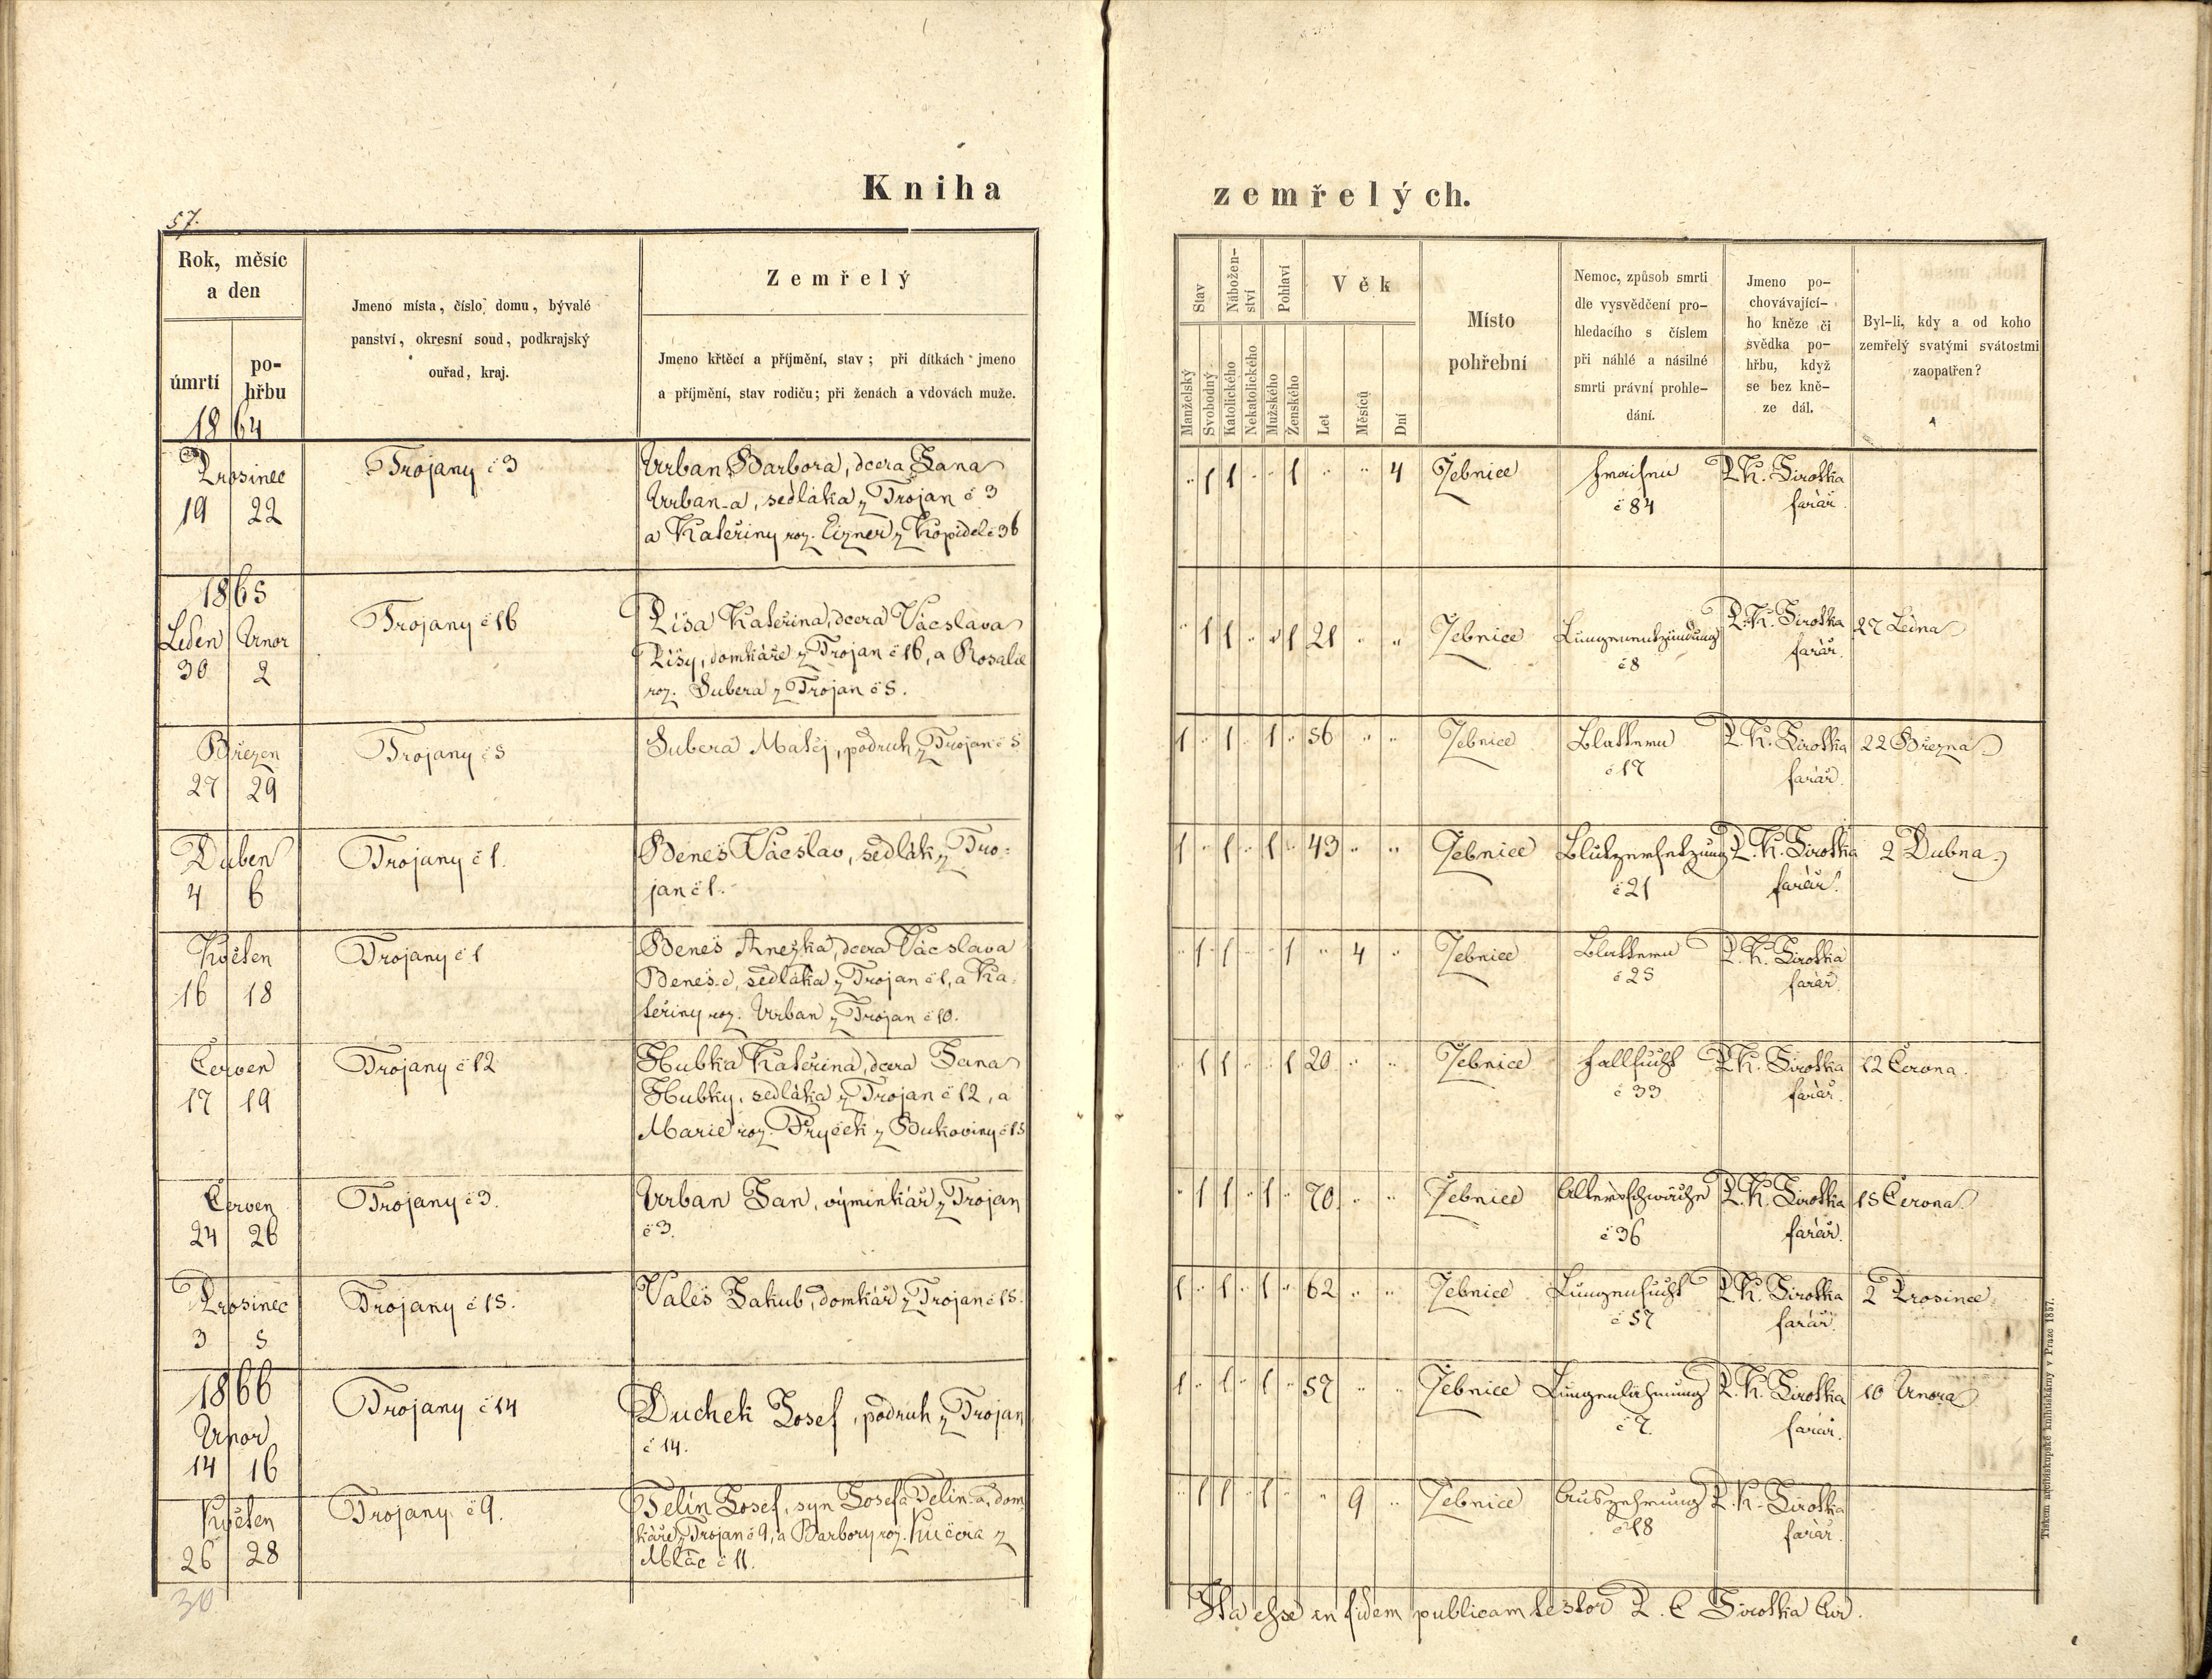 Kniha zemřelých.
57.
Rok, měsíc
a den
úmrtí
po-
hřbu
1864
Jmeno místa, číslo domu, bývalé
panství, okresní soud, podkrajský
ouřad, kraj.
Zemřelý
Jmeno křtěcí a příjmění, stav; při dítkách jmeno
a příjmění, stav rodičů; při ženách a vdovách muže.
Stav
Nábožen-
ství
Pohlaví
Věk
Manželský
Svobodný
Katolického
Nekatolického
Mužského
Ženského
Let
Měsíců
Dní
Místo
pohřební
Nemoc, způsob smrti
dle vysvědčení pro-
hledacího s číslem
při náhlé a násilné
smrti právní prohle-
dání.
Jmeno po-
chovávající-
ho kněze či
svědka po-
hřbu, když
se bez kně-
ze dál.
Byl-li, kdy a od koho
zemřelý svatými svátostmi
zaopatřen?
Prosinec
19 22
Trojany č 3
Urban Barbora, dcera Jana
Urban-a, sedláka z Trojan č 3
a Kateřiny roz. Eizner z Kopidel č 36
" 1 1 " " 1 " " 4
Jebnice
Fraisen
č 84
P. K. Sirotka
farář.
1865
Leden Únor
30 2
Trojany č 16
Píša Kateřina, dcera Vácslava
Píšy, domkáře z Trojan č 16, a Rosalie
roz. Šubera z Trojan č 5.
" 1 1 " " 1 21 " "
Jebnice
Lungenentzündung
č 8
P. K. Sirotka
farář.
27 Ledna
Březen
27 29
Trojany č 5
Šubera Matěj, podruh z Trojan č 5
1 " 1 " 1 " 56 " "
Jebnice
Blattern
č 17
P. K. Sirotka
farář.
22 Března
Duben
4 6
Trojany č 1.
Beneš Vácslav, sedlák z Tro-
jan č 1.
1 " 1 " 1 " 43 " "
Jebnice
Blutzersetzung
č 21
P. K. Sirotka
farář.
2 Dubna
Květen
16 18
Trojany č 1
Beneš Anežka, dcera Vácslava
Beneš-e, sedláka z Trojan č 1, a Ka-
teřiny roz. Urban z Trojan č 10.
" 1 1 " " 1 " 4 "
Jebnice
Blattern
č 25
P. K. Sirotka
farář.
Červen
17 19
Trojany č 12
Hubka Kateřina, dcera Jana
Hubky, sedláka z Trojan č 12, a
Marie roz. Fryček z Bukoviny č 15
" 1 1 " " 1 20 " "
Jebnice
Fallsucht
č 33
P. K. Sirotka
farář.
12 Června.
Červen
24 26
Trojany č 3.
Urban Jan, výminkář z Trojan
č 3.
" 1 1 " 1 " 70 " "
Jebnice
Altersschwäche
č 36
P. K. Sirotka
farář.
15 Června
Prosinec
3 5
Trojany č 15.
Valeš Jakub, domkář z Trojan č 15.
1 " 1 " 1 " 62 " "
Jebnice
Lungensucht
č 57
P. K. Sirotka
farář.
2 Prosince
1866
Únor
14 16
Trojany č 14
Duchek Josef, podruh z Trojan
č 14.
1 " 1 " 1 " 57 " "
Jebnice
Lungenlähmung
č 7.
P. K. Sirotka
farář.
10 Února
Květen
26 28
Trojany č 9.
Telín Josef, syn Josefa Telín-a, dom-
káře z Trojan č 9, a Barbory roz. Kučera z
Mlač č 11.
" 1 1 " 1 " " 9 "
Jebnice
Auszehrung
č 18
P. K. Sirotka
farář.
30
Ita esse in fidem publicam testor P. C Sirotka Cur.
Tiskem arcibiskupské knihtiskárny v Praze 1857.